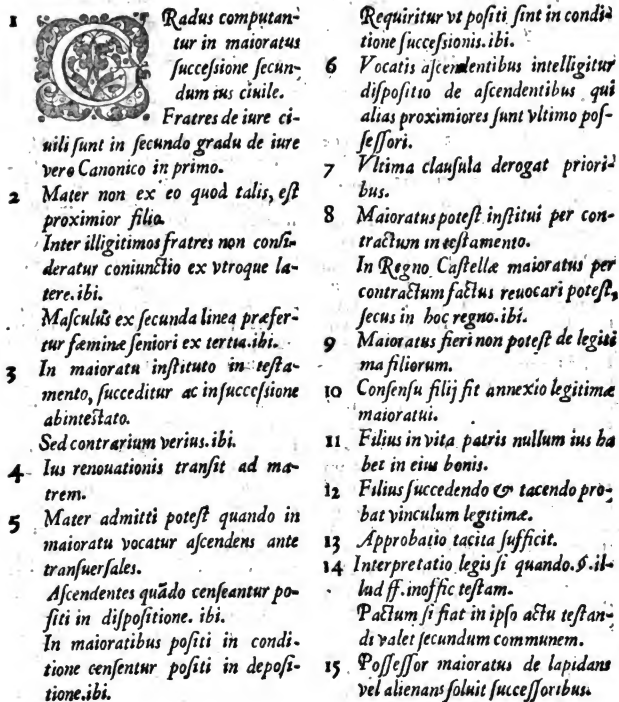 1 GRadus computan-
tur in maioratus
ſucceſsione ſecun-
dum ius ciuile.
Fratres de iure ci-
uili ſunt in ſecundo gradu de iure
vero Canonico in primo.
2 Mater non ex eo quod talis, eſt
proximior filio.
Inter illigitimos fratres non conſi-
deratur coniunctio ex vtroque la-
tere.ibi.
Maſculus ex ſecunda linea præfer-
tur fæminæ ſeniori ex tertia.ibi.
3 In maioratu inſtituto in teſta-
mento, ſucceditur ac in ſucceſsione
abinteſtato.
Sed contrarium verius.ibi.
4 Ius renouationis tranſit ad ma-
trem.
5 Mater admitti poteſt quando in
maioratu vocatur aſcendens ante
tranſuerſales.
Aſcendentes quãdo cenſeantur po-
ſiti in diſpoſitione. ibi.
In maioratibus poſiti in condi-
tione cenſentur poſiti in depoſi-
tione.ibi.
Requiritur vt poſiti ſint in condi-
tione ſucceſsionis.ibi.
6 Vocatis aſcendentibus intelligitur
diſpoſitio de aſcendentibus qui
alias proximiores ſunt vltimo poſ-
ſeſſori.
7 Vltima clauſula derogat priori-
bus.
8 Maioratus poteſt inſtitui per con-
tractum in teſtamento.
In Regno Caſtellæ maioratus per
contractum factus reuocari poteſt,
ſecus in hoc regno.ibi.
9 Maioratus fieri non poteſt de legiti
ma filiorum.
10 Conſenſu filij fit annexio legitimæ
maioratui.
11 Filius in vita patris nullum ius ha
bet in eius bonis.
12 Filius ſuccedendo & tacendo pro-
bat vinculum legitimæ.
13 Approbatio tacita ſufficit.
14 Interpretatio legis ſi quando.§.il-
lud ff.inoffic teſtam.
Pactum ſi fiat in ipſo actu teſtan-
di valet ſecundum communem.
15 Poſſeſſor maioratus de lapidans
vel alienans ſoluit ſucceſſoribus.